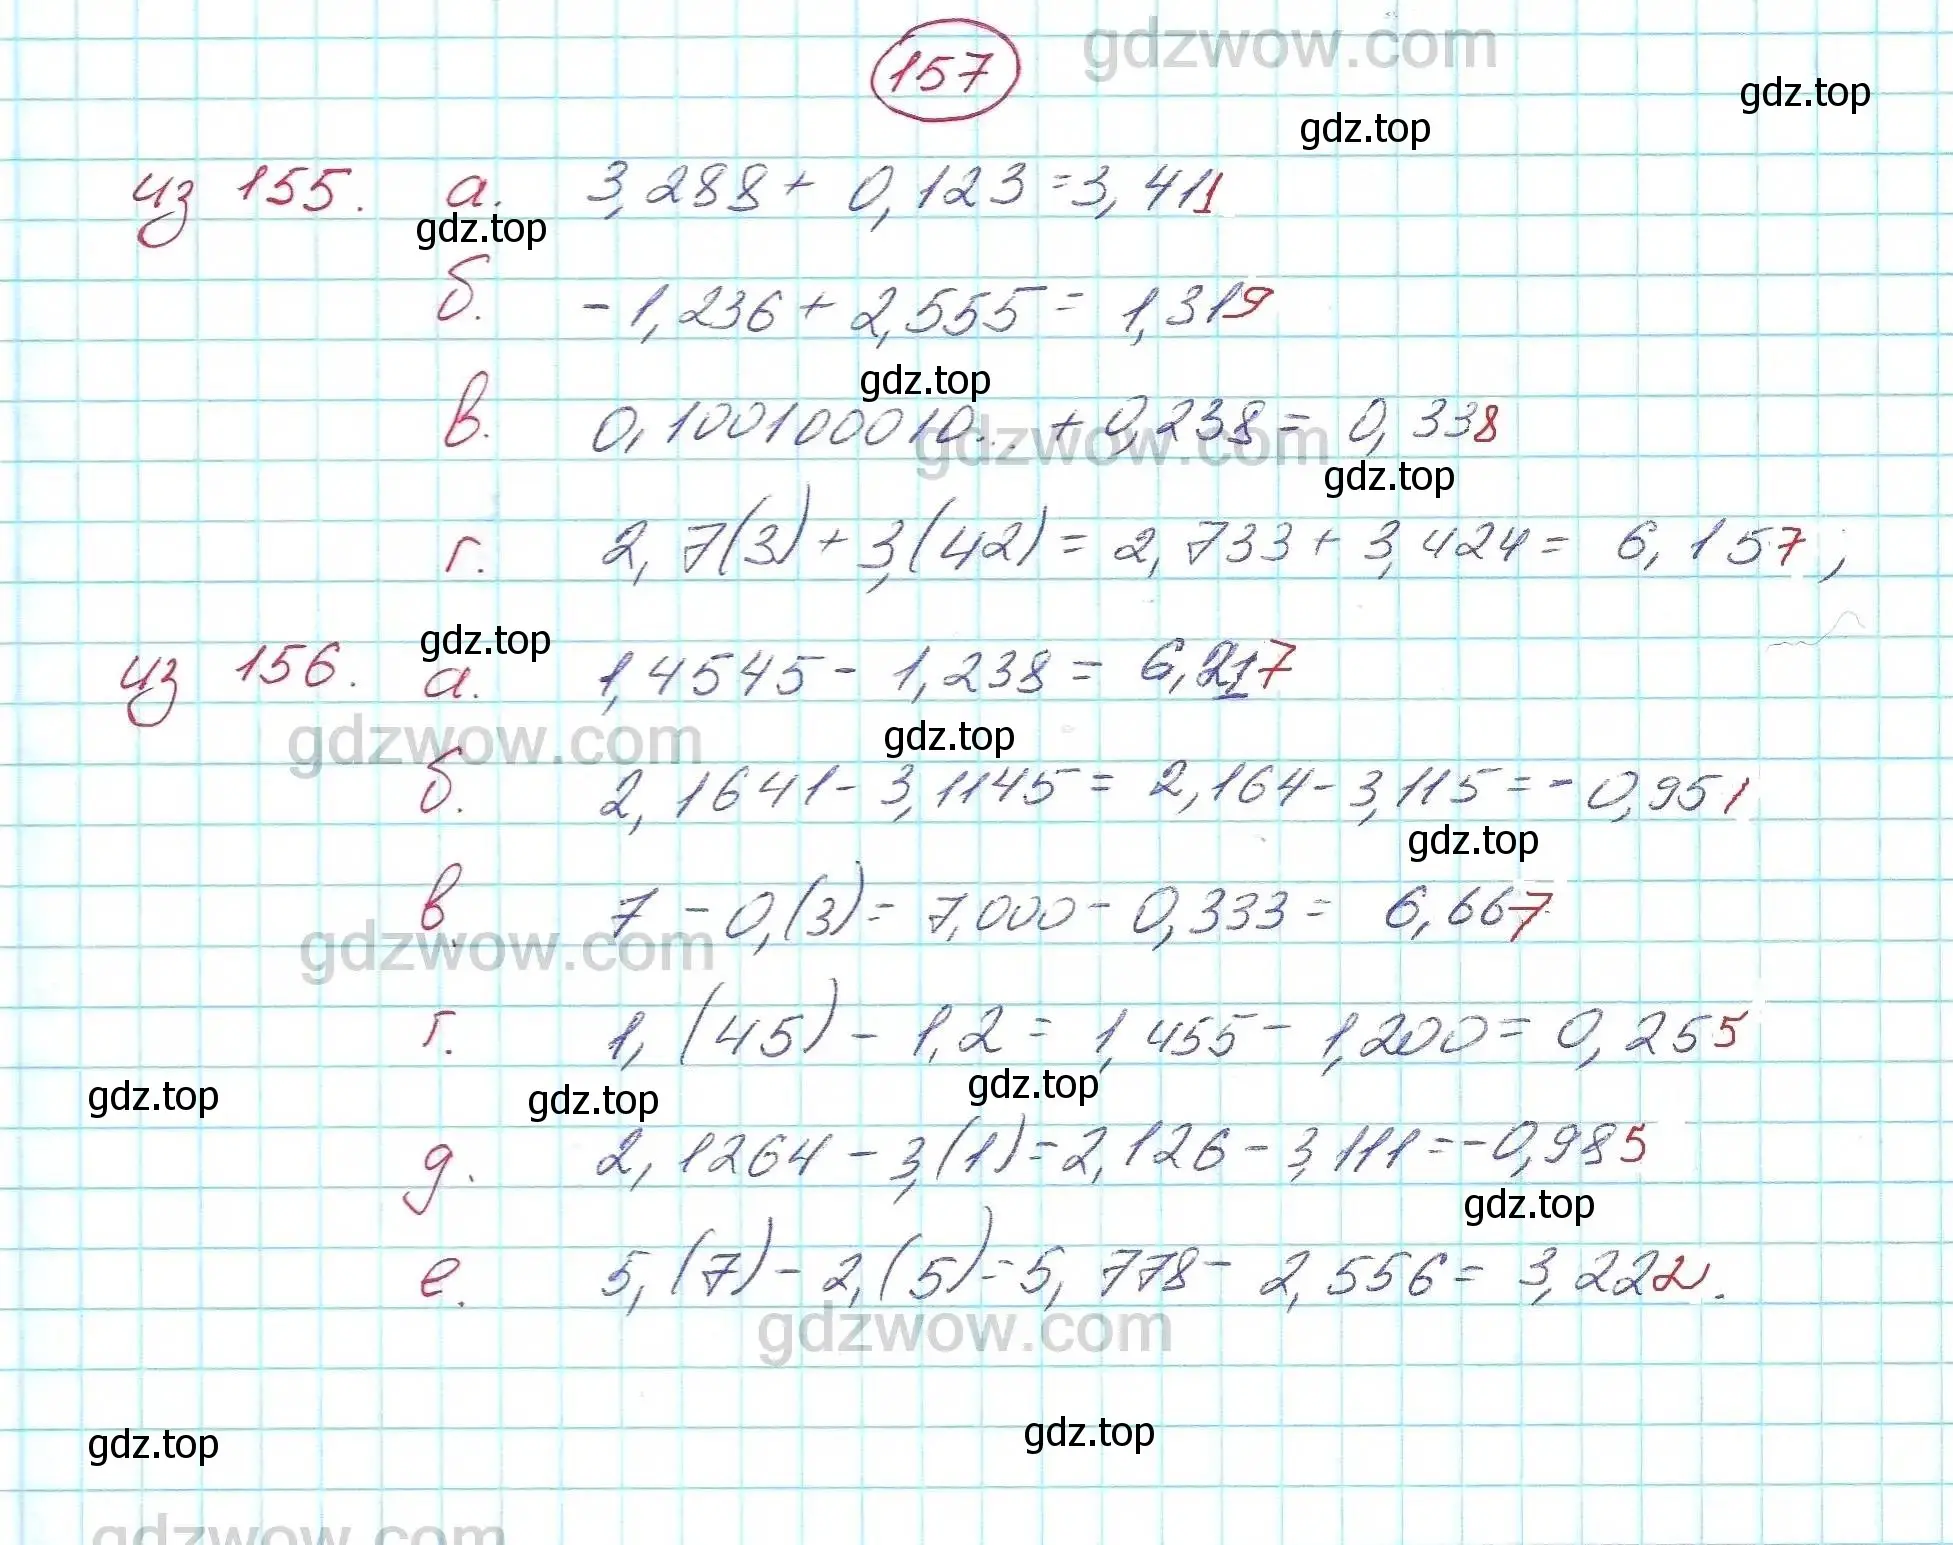 157
gdzwow.com
gdz.top
gdz.top
из 155. а. 3,288 + 0,123 = 3,411
gdz.top
б. -1,236 + 2,555 = 1,319
gdz.top
в. 0,1001000010... + 0,238 = 0,338
gdzwow.com
gdz.top
г. 2,7(3) + 3,(42) = 2,733 + 3,424 = 6,157;
gdz.top
из 156. а. 1,4545 - 1,238 = 6,217
gdzwow.com
gdz.top
б. 2,1641 - 3,1145 = 2,164 - 3,115 = -0,951
gdz.top
в. 7 - 0,(3) = 7,000 - 0,333 = 6,667
gdzwow.com
г. 1,(45) - 1,2 = 1,455 - 1,200 = 0,255
gdz.top
gdz.top
gdz.top
д. 2,1264 - 3,(1) = 2,126 - 3,111 = -0,985
gdz.top
е. 5,(7) - 2,(5) = 5,778 - 2,556 = 3,222.
gdzwow.com
gdz.top
gdz.top
gdzwow.com